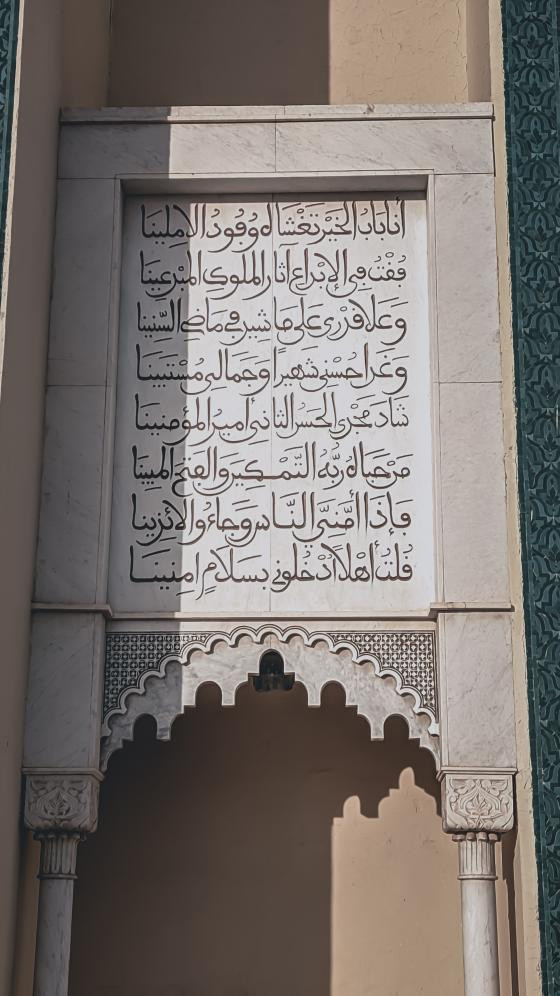 أنا باب الخير تغشاه وفود الآملينا
فقت في الإبداع آثار الملوك المبدعينا
وعلا قدري على ما شيد في ماضي السنينا
وغدا حسني شهيرا وجمالي مستبينا
شاد مجدي الحسن الثاني أمير المؤمنينا
مرحبا له ربه التمكين والفتح المبينا
فإذا أمني الناس وجاءوا لائذينا
قلت أهلا ادخلوني بسلام آمنينا